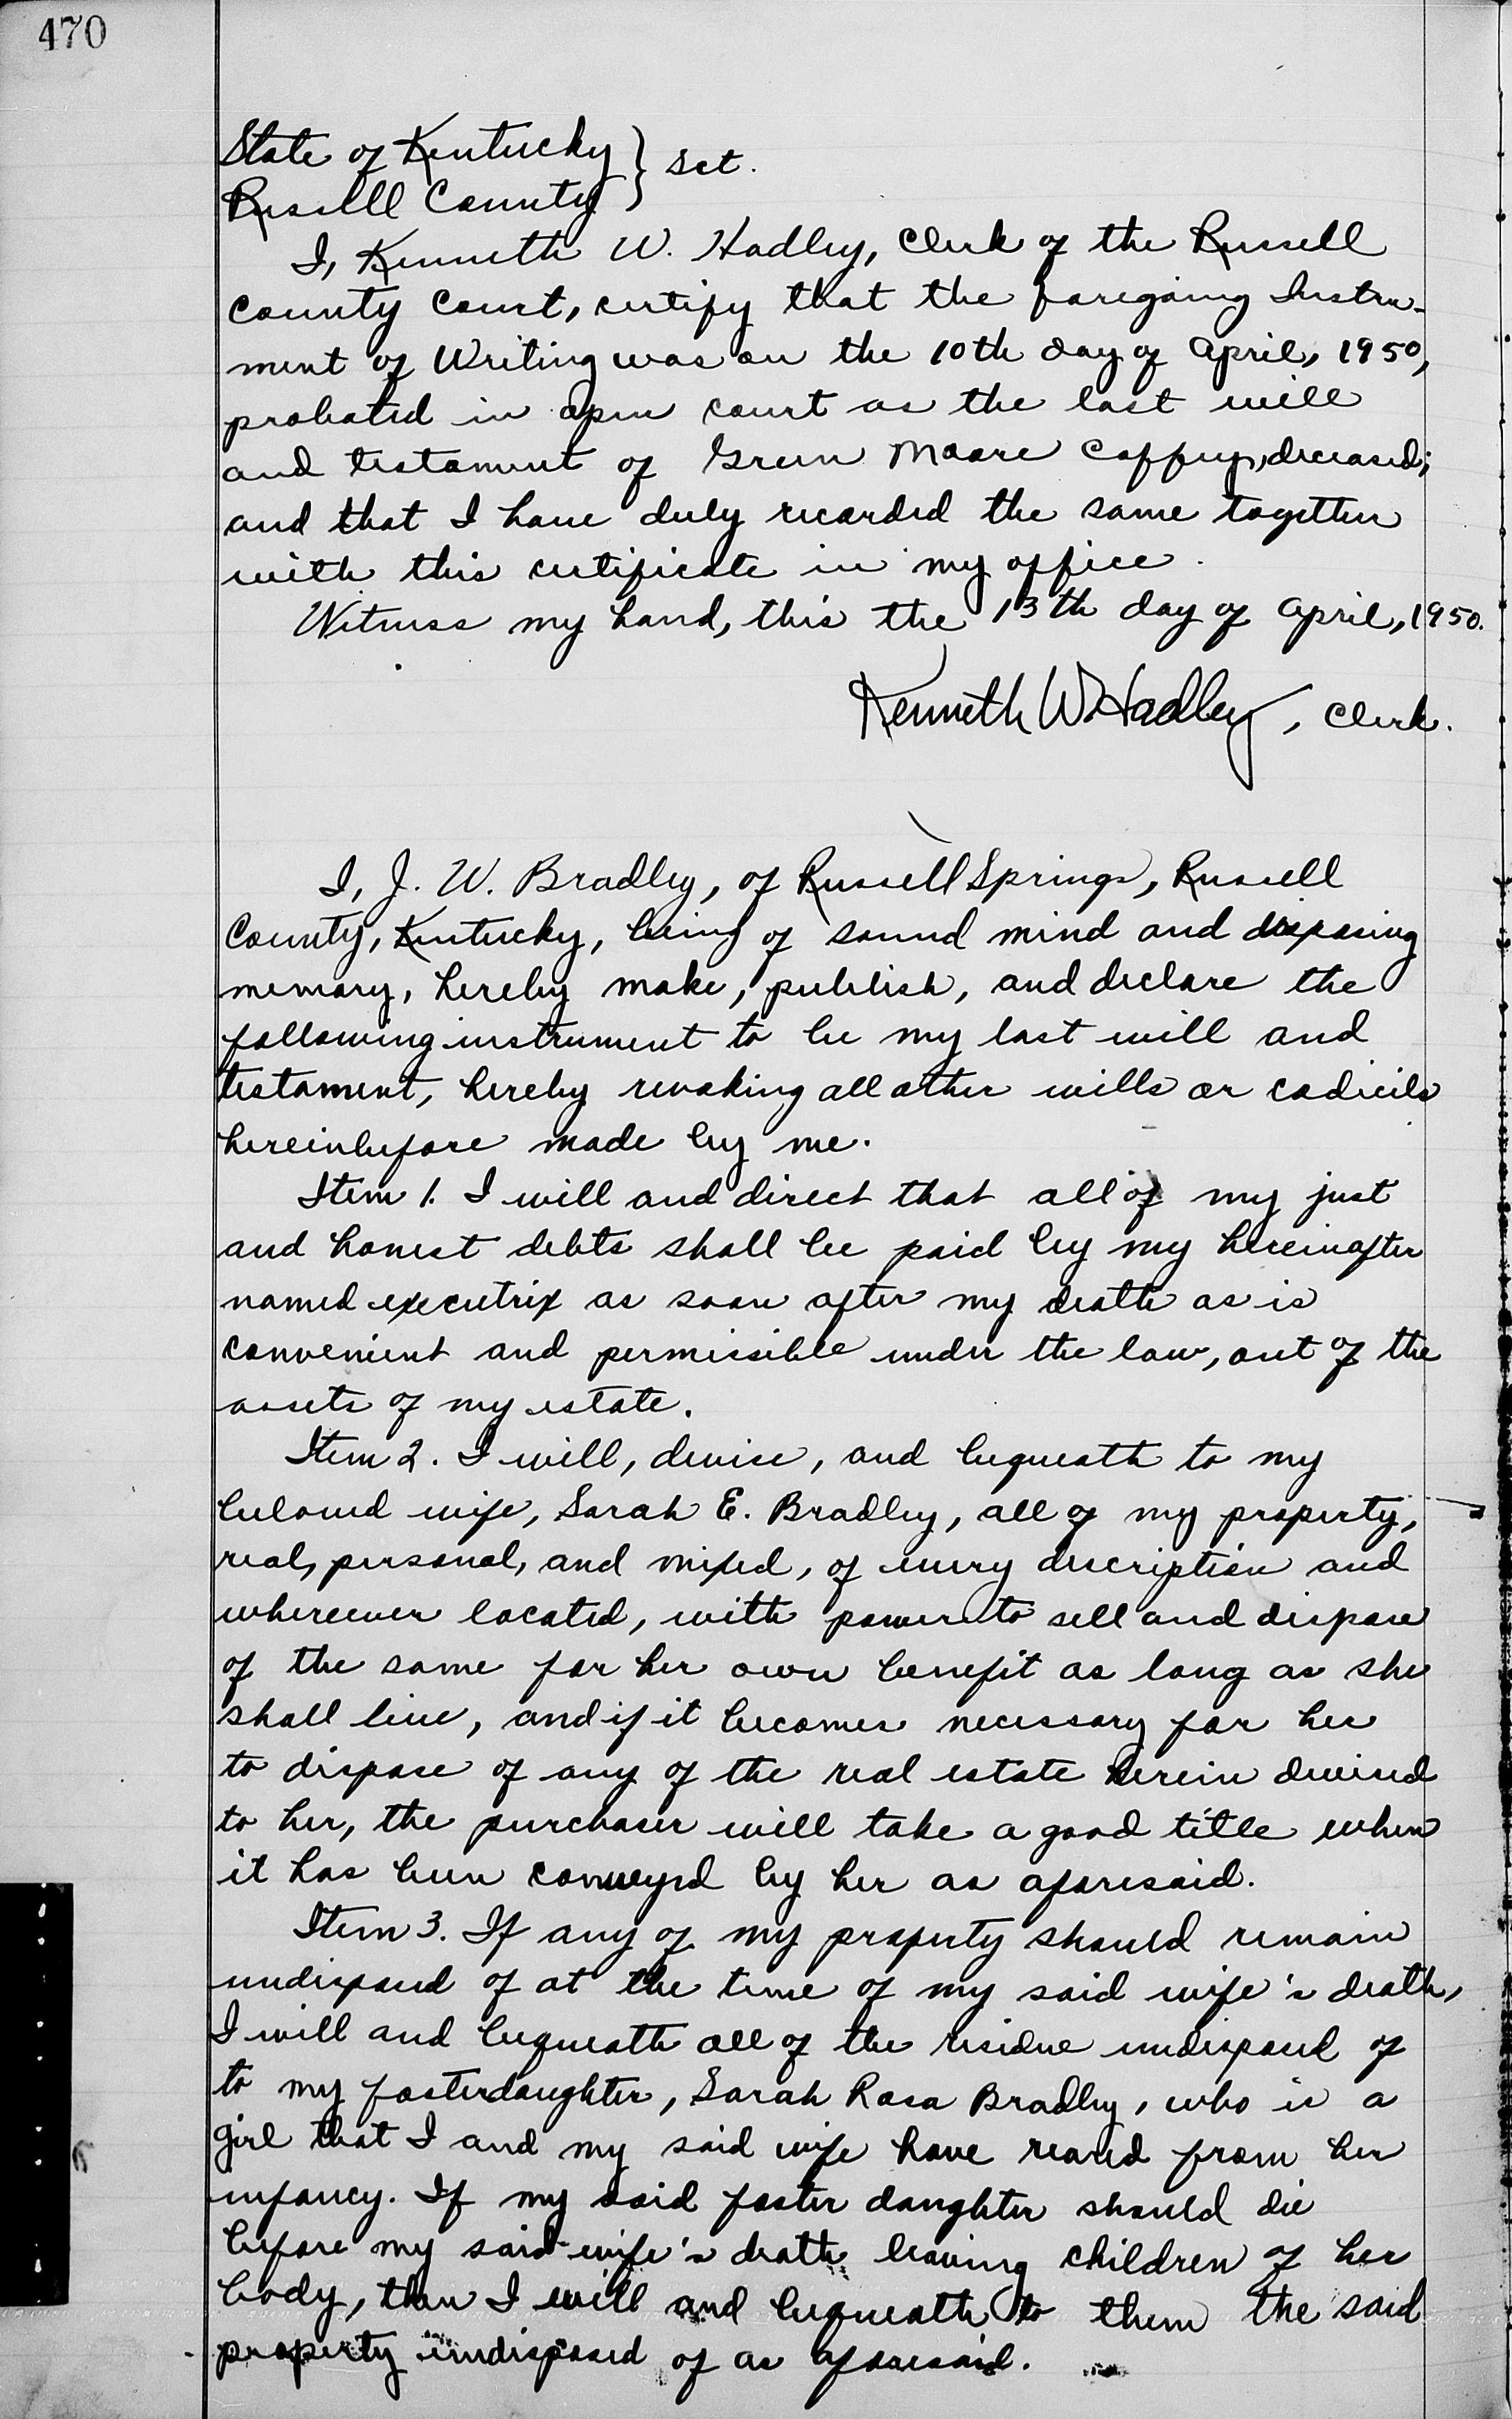 470
State of Kentucky } Sct.
Russell County
I, Kenneth W. Hadley, Clerk of the Russell
County Court, certify that the foregoing Instru-
ment of Writing was on the 10th day of April, 1950,
probated in open court as the last will
and testament of Green Moore Caffey, deceased;
and that I have duly recorded the same together
with this certificate in my office.
Witness my hand, this the 13th day of April, 1950.
Kenneth W. Hadley, Clerk.
I, J. W. Bradley, of Russell Springs, Russell
County, Kentucky, being of sound mind and disposing
memory, hereby make, publish, and declare the
following instrument to be my last will and
testament, hereby revoking all other wills or codicils
hereinbefore made by me.
Item 1. I will and direct that all of my just
and honest debts shall be paid by my hereinafter
named executrix as soon after my death as is
convenient and permissible under the law, out of the
assets of my estate.
Item 2. I will, devise, and bequeath to my
beloved wife, Sarah E. Bradley, all of my property,
real, personal, and mixed, of every description and
whereever located, with power to sell and dispose
of the same for her own benefit as long as she
shall live, and if it becomes necessary for her
to dispose of any of the real estate herein devised
to her, the purchaser will take a good title when
it has been conveyed by her as aforesaid.
Item 3. If any of my property should remain
undisposed of at the time of my said wife's death,
I will and bequeath all of the residue undisposed of
to my fosterdaughter, Sarah Rosa Bradley, who is a
girl that I and my said wife have reared from her
infancy. If my said foster daughter should die
before my said wife's death leaving children of her
body, then I will and bequeath to them the said
property undisposed of as aforesaid.